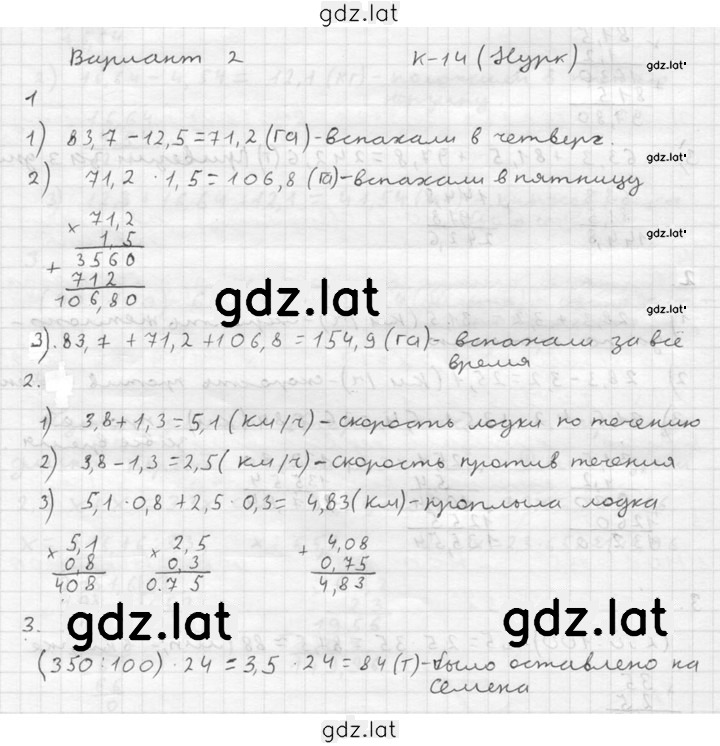 gdz.lat
Вариант 2 К-14 (Нурк) gdz.lat
1
1) 83,7 - 12,5 = 71,2 (га) - вспахали в четверг.
gdz.lat
2) 71,2 · 1,5 = 106,8 (га) - вспахали в пятницу
× 71,2
1,5 gdz.lat
+ 3560
712
106,80
gdz.lat
gdz.lat
3). 83,7 + 71,2 + 106,8 = 154,9 (га) - вспахали за все
время
2.
1) 3,8 + 1,3 = 5,1 (км/ч) - скорость лодки по течению
2) 3,8 - 1,3 = 2,5 (км/ч) - скорость против течения
3) 5,1 · 0,8 + 2,5 · 0,3 = 4,83 (км) - проплыла лодка
× 5,1 × 2,5 + 4,08
0,8 0,3 0,75
408 0.75 4,83
gdz.lat gdz.lat
3.
(350:100) · 24 = 3,5 · 24 = 84 (т) - было оставлено на
семена
gdz.lat